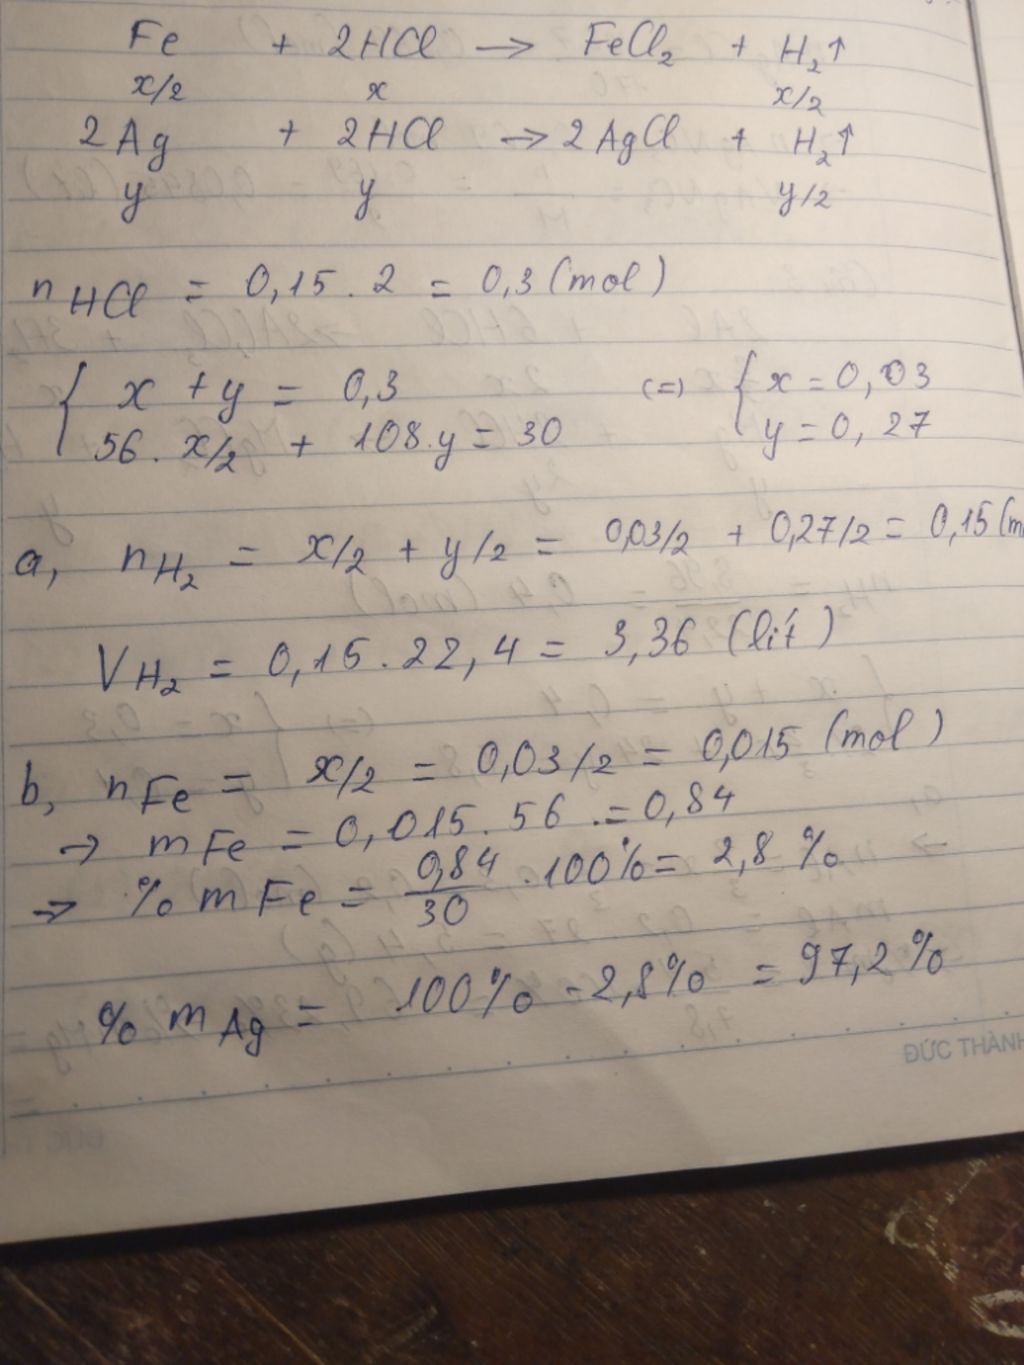 Fe + 2HCl → FeCl₂ + H₂↑
x/2 x x/2
2Ag + 2HCl → 2AgCl + H₂↑
y y y/2
n HCl = 0,15 . 2 = 0,3 (mol)
{ x + y = 0,3 (=) { x = 0,03
56. x/2 + 108.y = 30 y = 0,27
a, nH₂ = x/2 + y/2 = 0,03/2 + 0,27/2 = 0,15 (m
VH₂ = 0,15 . 22,4 = 3,36 (lít)
b, nFe = x/2 = 0,03/2 = 0,015 (mol)
→ mFe = 0,015. 56 = 0,84
→ % mFe = 0,84/30 .100% = 2,8 %
% mAg = 100% - 2,8% = 97,2%
ĐỨC THÀNH